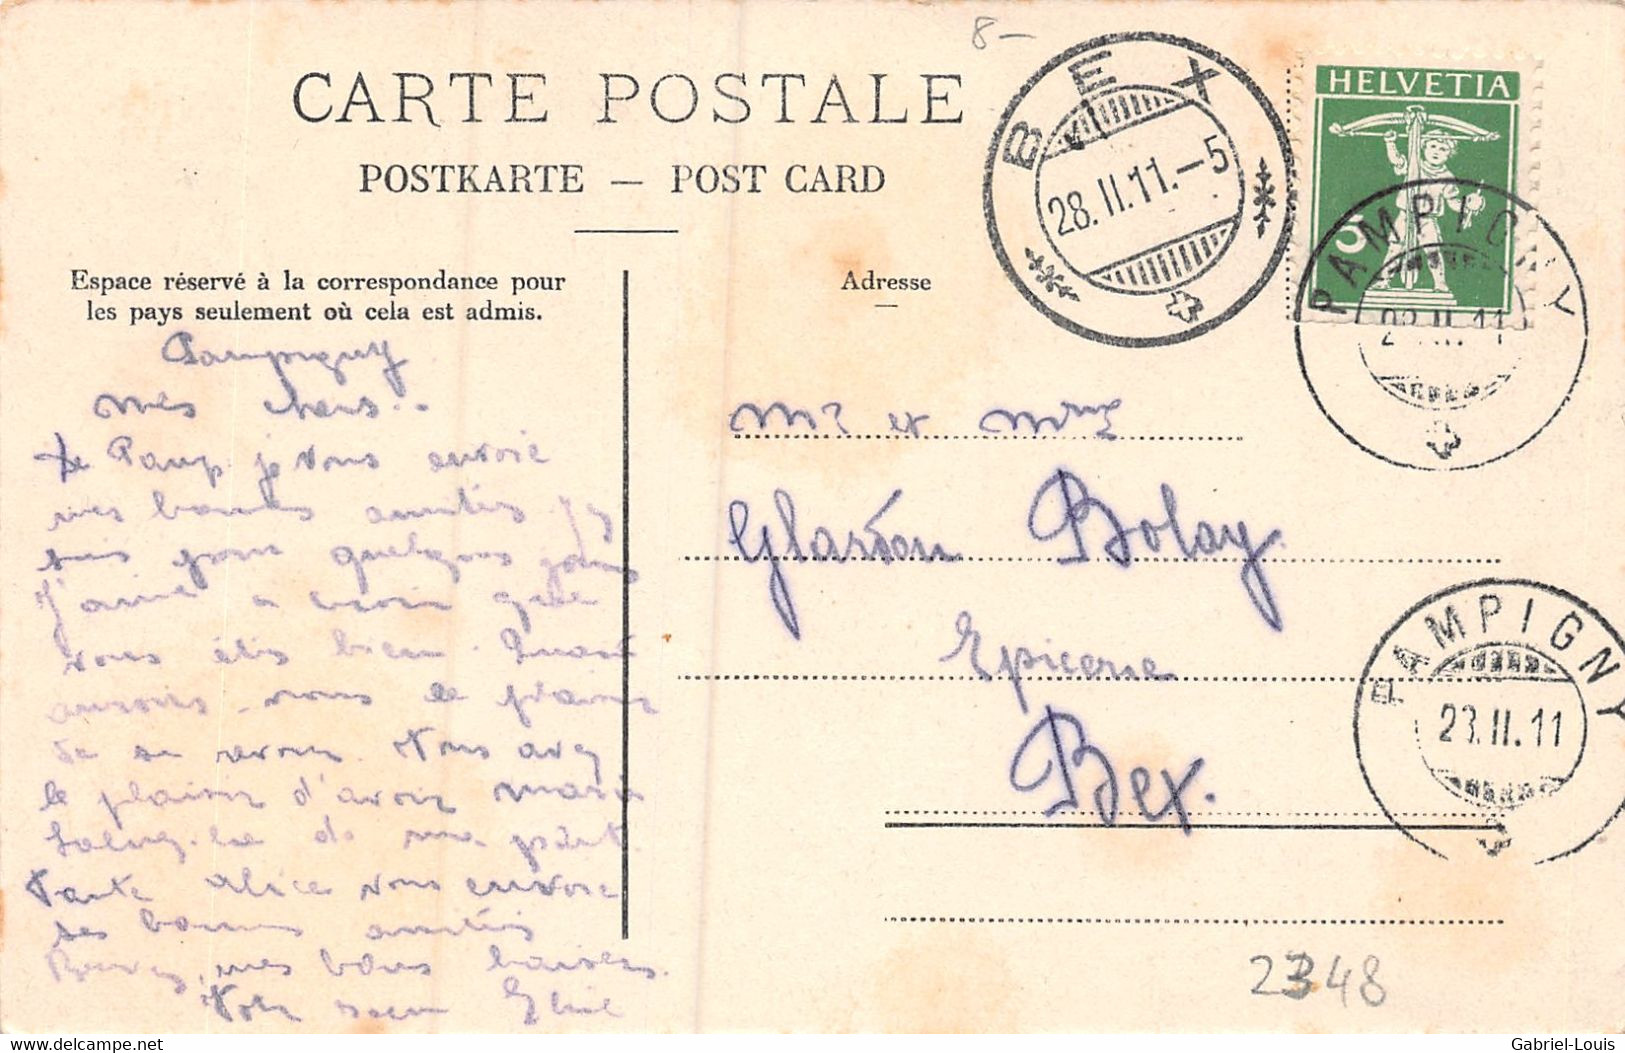 8-
CARTE POSTALE
POSTKARTE — POST CARD
BEX
28.II.11.-5
HELVETIA
5
PAMPIGNY
II.11
Espace réservé à la correspondance pour
les pays seulement où cela est admis.
Adresse
Pampigny
mes chers..
De Pamp. je vous envoie
mes bonnes amitiés j'y
suis pour quelques jours
J'aime a croire que
vous êtes bien. Quand
aurons-nous le plaisir
de se revoir. Vous avez
le plaisir d'avoir Maria
de ma part.
Tante Alice vous envoie
ses bonnes amitiés
mes bons baisers.
Votre
Mr et Mme
Glardon Bolay.
Epicerie
Bex.
PAMPIGNY
23.II.11
2348
delcampe.net
Gabriel-Louis